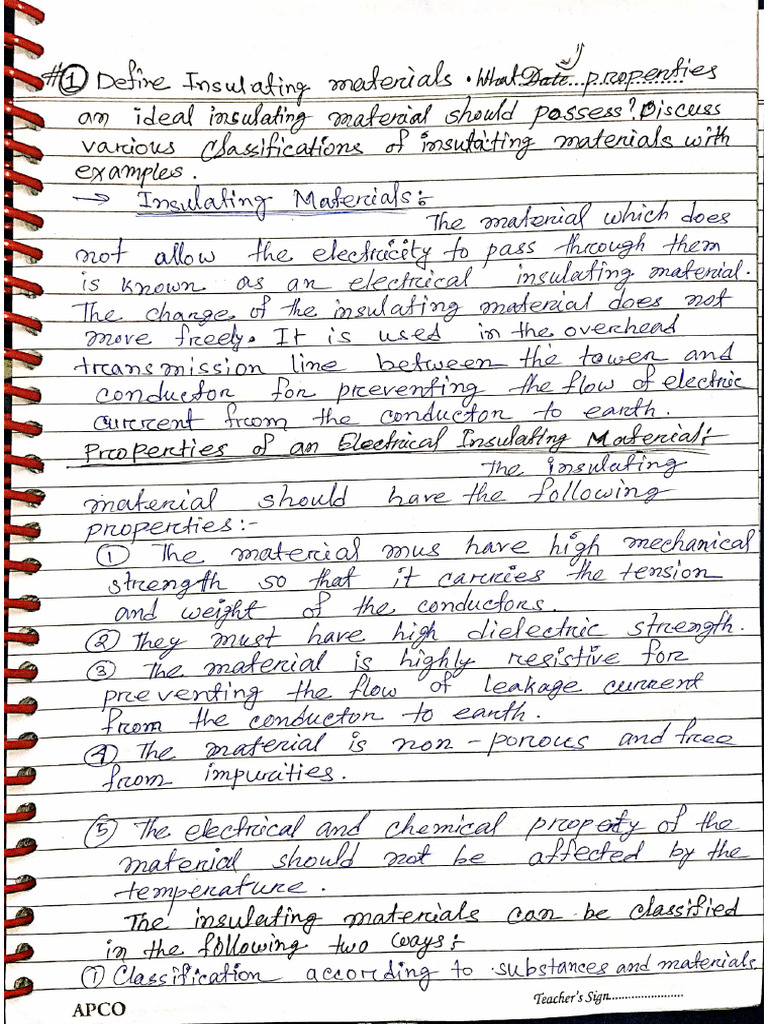 #① Define Insulating materials. What Date properties
an ideal insulating material should possess? Discuss
various classifications of insulating materials with
examples.
→ Insulating Materials:-
The material which does
not allow the electricity to pass through them
is known as an electrical insulating material.
The charge of the insulating material does not
move freely. It is used in the overhead
transmission line between the tower and
conductor for preventing the flow of electric
current from the conductor to earth.
Properties of an Electrical Insulating Material:-
The insulating
material should have the following
properties:-
① The material mus have high mechanical
strength so that it carries the tension
and weight of the conductors.
② They must have high dielectric strength.
③ The material is highly resistive for
preventing the flow of leakage current
from the conductor to earth.
④ The material is non-porous and free
from impurities.
⑤ The electrical and chemical property of the
material should not be affected by the
temperature.
The insulating materials can be classified
in the following two ways:
① Classification according to substances and materials
APCO
Teacher's Sign.......................